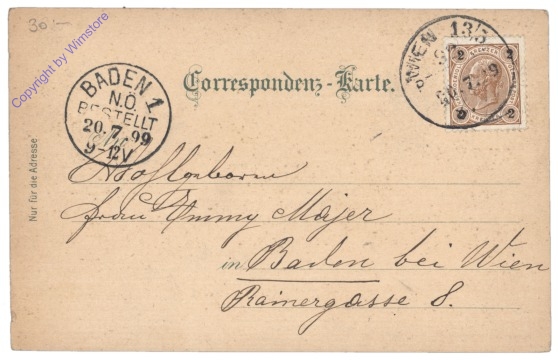 30.-
Copyright by Wimstore
WIEN 13/3
2 2
2 2
BADEN 1
N.Ö.
BESTELLT
20.7.99
9-12V
Correspondenz-Karte.
Nur für die Adresse
Hochgeboren
Frau Emmy Majer
in Baden bei Wien
Rainergasse 8.